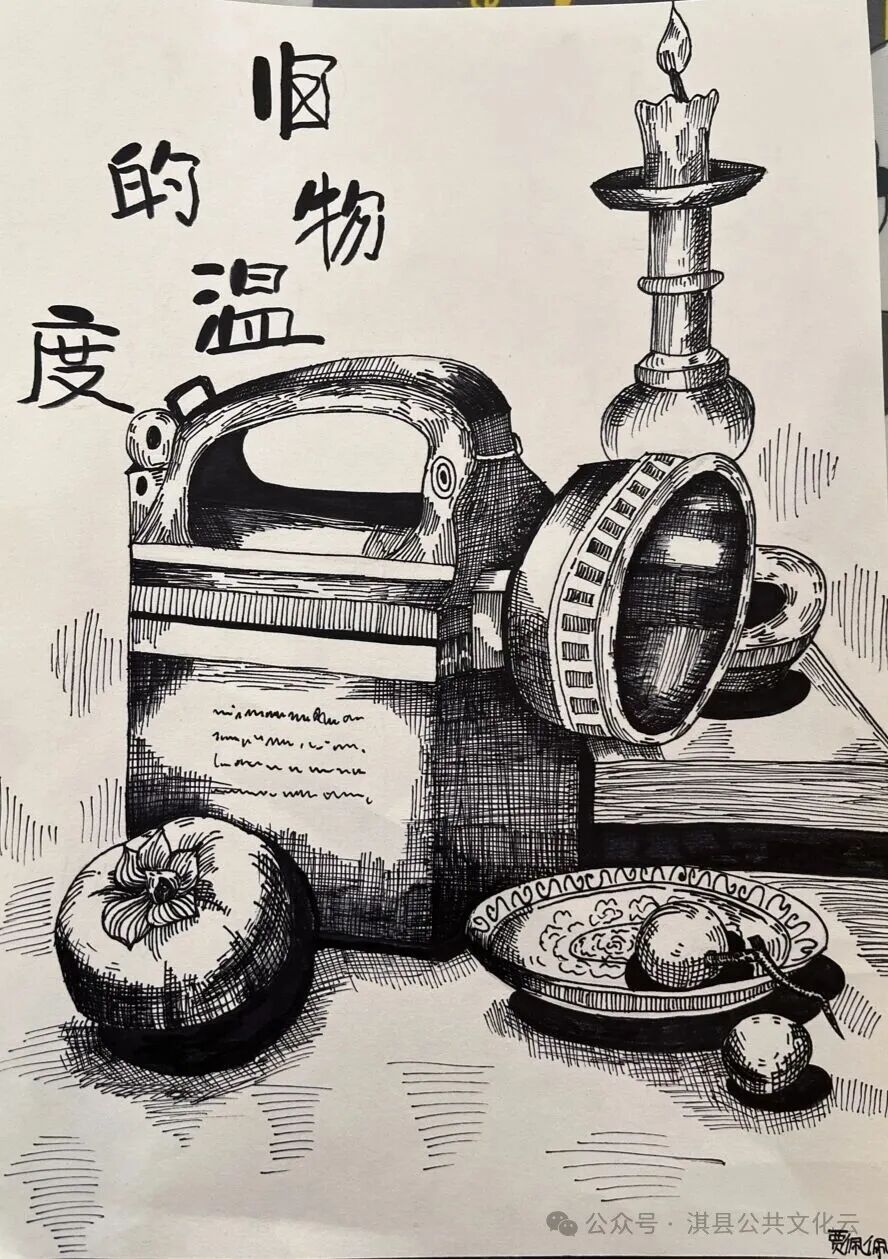 旧物
的温
度
公众号 · 淇县公共文化云
贾佩佩